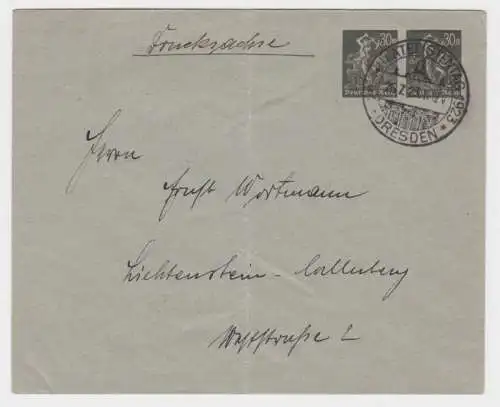 Drucksache
30 30
Deutsches Reich
1923
DRESDEN
Herrn
Ernst Wortmann
Lichtenstein-Callnberg
Weststraße 2